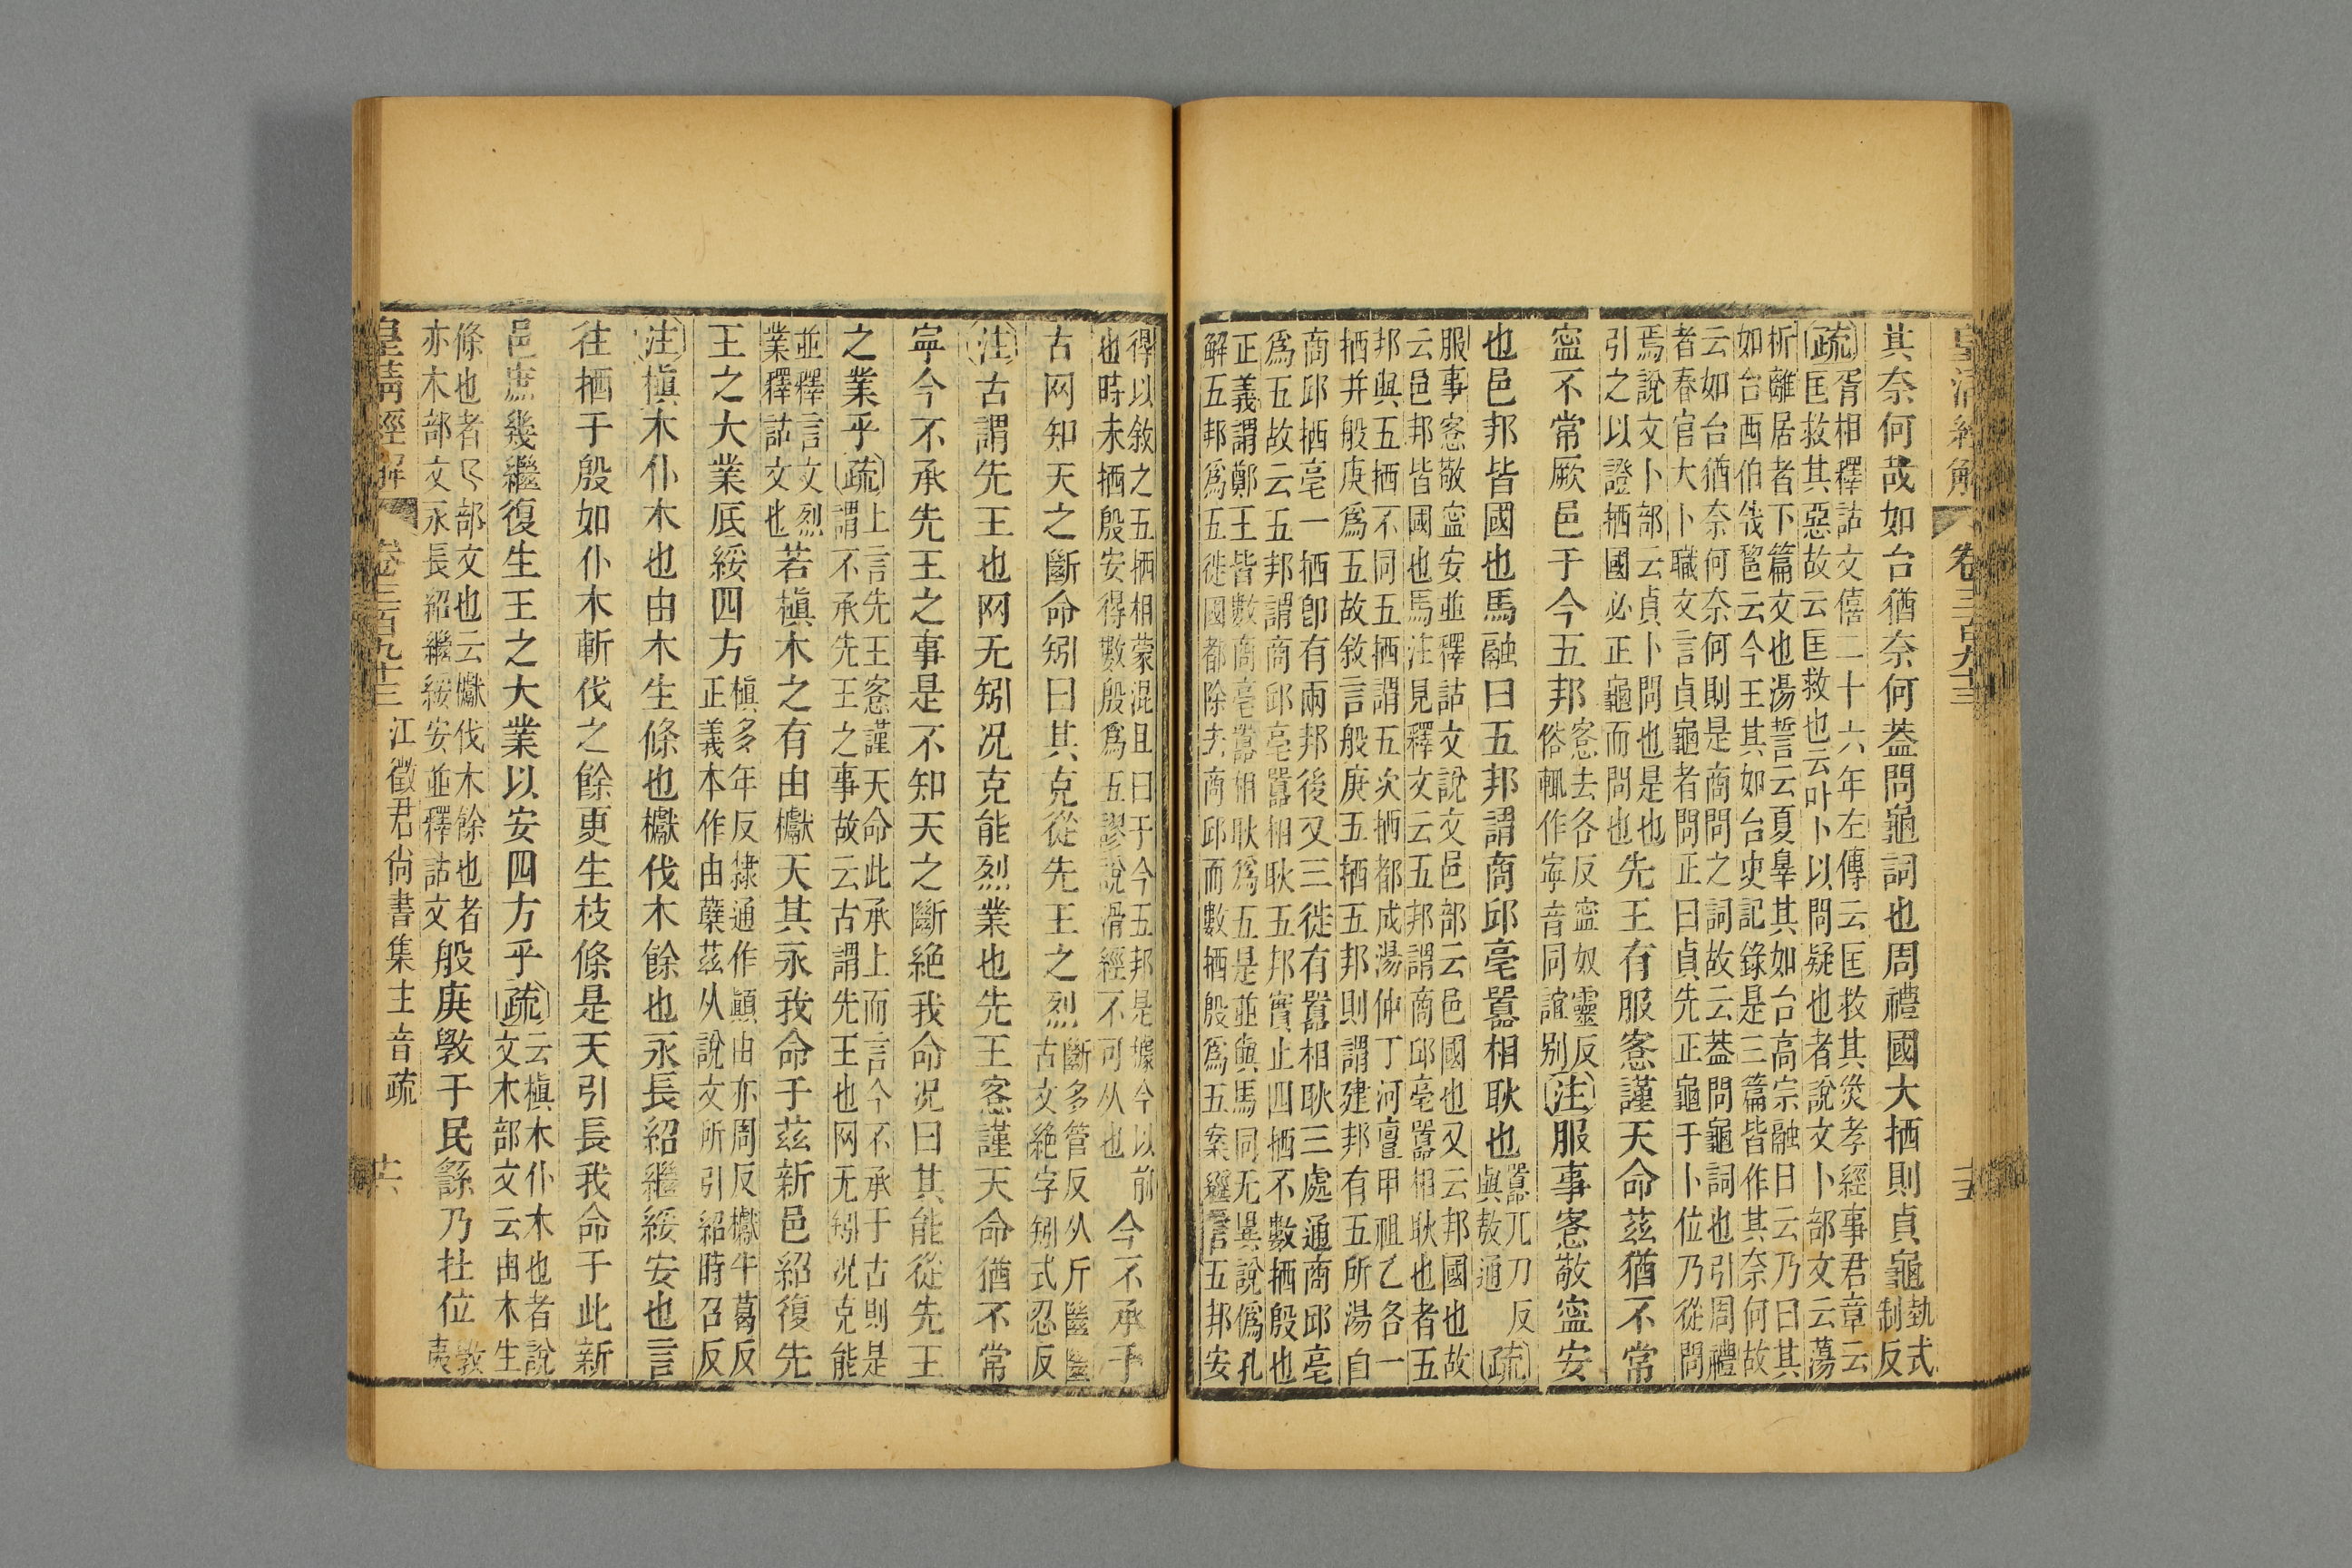 皇清經解 卷三百九十三 十五
其奈何哉如台猶奈何葢問龜詞也周禮國大𨒌則貞龜𫝑式
制反
疏胥相釋詁文僖二十六年左傳云匡救其災孝經事君章云
匡救其惡故云匡救也云卟卜以問疑也者說文卜部文云蕩
析離居者下篇文也湯誓云夏辠其如台高宗融日云乃曰其
如台西伯戗𨛫云今王其如台史記錄是三篇皆作其奈何故
云如台猶奈何奈何則是商問之詞故云葢問龜詞也引周禮
者春官大卜職文言貞龜者問正曰貞先正龜于卜位乃從問
焉說文卜部云貞卜問也是也
引之以證𨒌國必正龜而問也先王有服愙謹天命茲猶不常
寍不常厥邑于今五邦愙去各反寍奴靈反
俗輒作寧音同誼别注服事愙敬寍安
也邑邦皆國也馬融曰五邦謂商邱亳囂相耿也囂兀刀反
與敖通疏
服事愙敬寍安並釋詁文說文邑部云邑國也又云邦國也故
云邑邦皆國也馬注見釋文云五邦謂商邱亳囂相耿也者五
邦與五𨒌不同五𨒌謂五次𨒌都成湯仲丁河亶甲祖乙各一
𨒌并般庚爲五故敘言般庚五𨒌五邦則謂建邦有五所湯自
商邱𨒌亳一𨒌卽有兩邦後又三徙有囂相耿三處通商邱亳
爲五故云五邦謂商邱亳囂相耿五邦實止四𨒌不數𨒌殷也
正義謂鄭王皆數商亳囂相耿爲五是並與馬同无異說僞孔
解五邦爲五徙國都除去商邱而數𨒌殷爲五案經言五邦安
得以敘之五𨒌相蒙混且曰于今五邦是據今以前
也時未𨒌殷安得數殷爲五謬說滑經不可从也今不承于
古网知天之斷命矧曰其克從先王之烈斷多管反从斤㡭㡭
古文絶字矧式忍反
注古謂先王也网无矧况克能烈業也先王愙謹天命猶不常
寧今不承先王之事是不知天之斷絶我命况曰其能從先王
之業乎疏上言先王愙謹天命此承上而言今不承于古則是
謂不承先王之事故云古謂先王也网无矧况克能
並釋言文烈
業釋詁文也若槙木之有由㰕天其永我命于茲新邑紹復先
王之大業厎綏四方槙多年反隸通作顚由亦周反㰕牛葛反
正義本作由蘖茲从說文所引紹時召反
注槙木仆木也由木生條也㰕伐木餘也永長紹繼綏安也言
往𨒌于殷如仆木斬伐之餘更生枝條是天引長我命于此新
邑庶幾繼復生王之大業以安四方乎疏云槙木仆木也者說
文木部文云由木生
條也者𢎘部文也云㰕伐木餘也者
亦木部文永長紹繼綏安並釋詁文般庚斆于民繇乃在位斆
夷
皇清經解 卷三百九十三 江徵君尚書集注音疏 十六